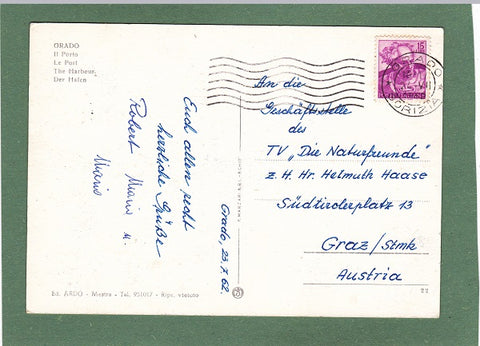 GRADO
Il Porto
Le Port
The Harbour
Der Hafen
Euch allen recht
herzliche Grüße
Robert Maria u.
Mario
Grado, 23.7.62.
An die
Geschäftsstelle
des
TV „Die Naturfreunde"
z. H. Hr. Helmuth Haase
Südtirolerplatz 13
Graz/Stmk
Austria
15
GRADO
GORIZIA
Ed. ARDO - Mestre - Tel. 951017 - Ripr. vietata